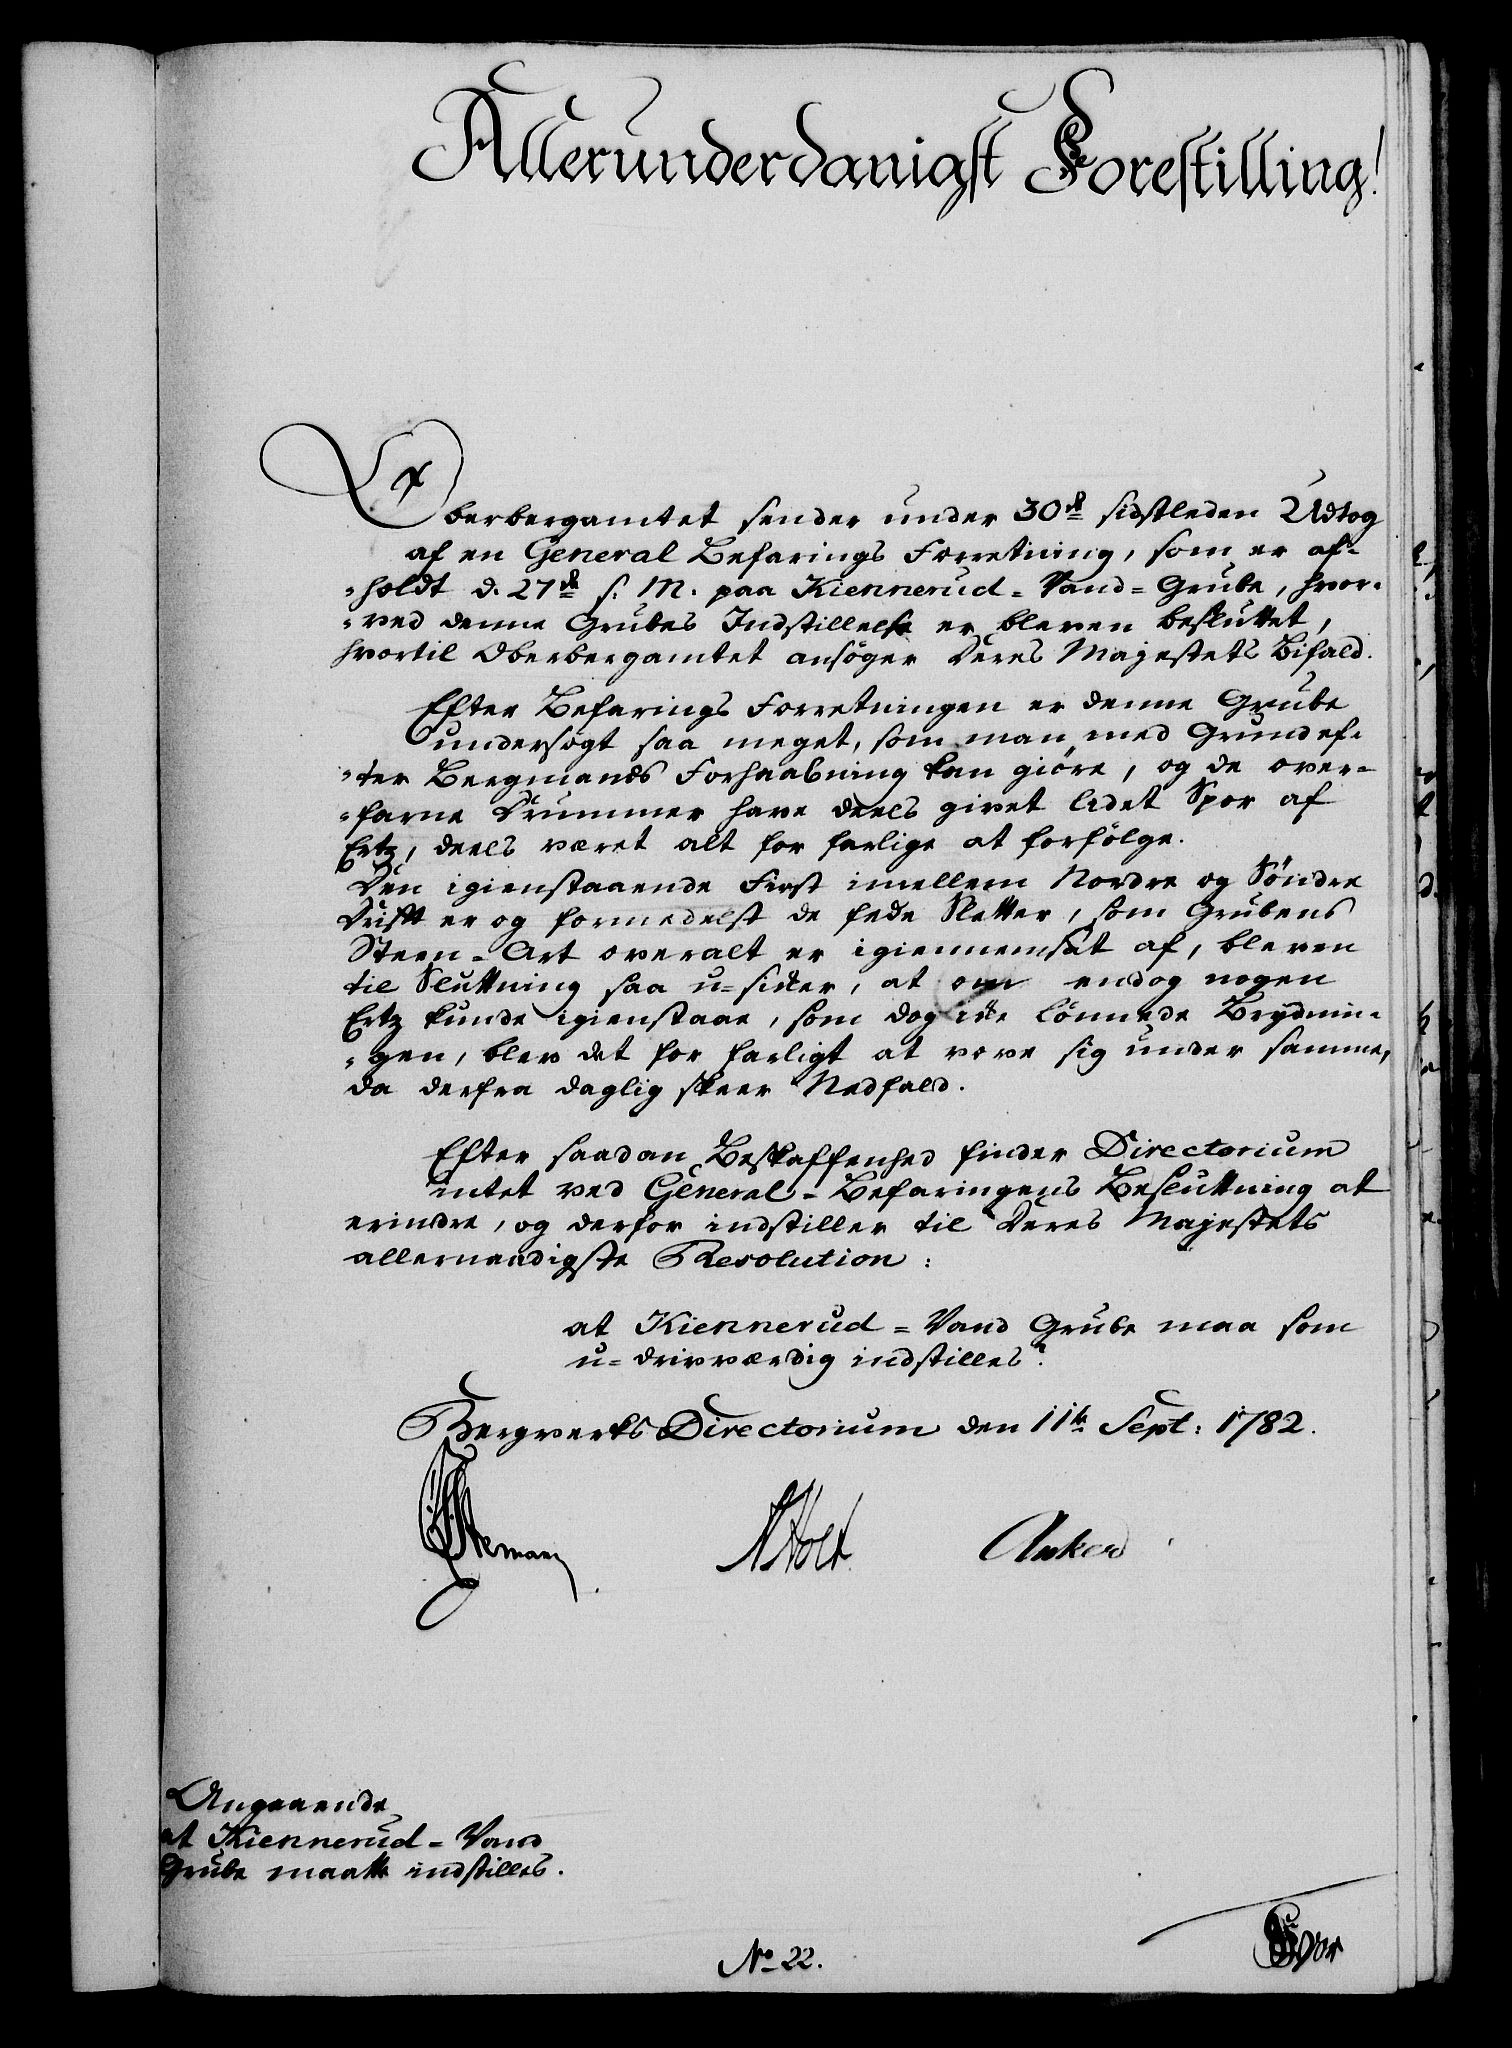 Allerunderdanigst Forestilling!
Oberbergamtet sender under 30d sidstleden Udtog
af en General Befarings Forretning, som er af-
-holdt d. 27d s. M. paa Kiennerud-Vand-Grube, hvor-
-ved denne Grubes Indstillelse er bleven besluttet,
hvortil Oberbergamtet ansöger Deres Majestets Bifald.
Efter Befarings Forretningen er denne Grube
undersögt saa meget, som man med Grund ef-
-ter Bergmands Forhaabning kan giöre, og de over-
-farne Drummer have deels givet lidet Spor af
Ertz, deels været alt for farlige at forfölge.
Den igienstaaende First imellem Nordre og Söndre
Drift er og formedelst de fede Sletter, som Grubens
Steen-Art overalt er igiennemsat af, bleven
til Sluttning saa u-sikker, at om endog nogen
Ertz kunde igienstaae, som dog ikke lönnede Brydnin-
-gen, blev det for farligt at vove sig under samme,
da derfra daglig skeer Nedfald.
Efter saadan Beskaffenhed finder Directorium
intet ved General-Befaringens Besluttning at
erindre, og derfor indstiller til Deres Majestets
allernaadigste Resolution:
at Kiennerud-Vand Grube maa som
u-drivværdig indstilles?
Bergverks Directorium den 11te Sept: 1782.
Stemann Holt Anker
Angaaende
at Kiennerud-Vand
Grube maatte indstilles.
No 22.
Hvor